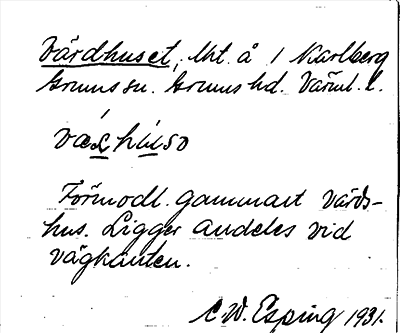 Värdhuset, lht. å 1 Karlberg
Grums sn. Grums hd. Värml. l.
vǽʂhúso
Förmodl. gammart värds-
hus. Ligger alldeles vid
vägkanten.
C W. Esping 1931.